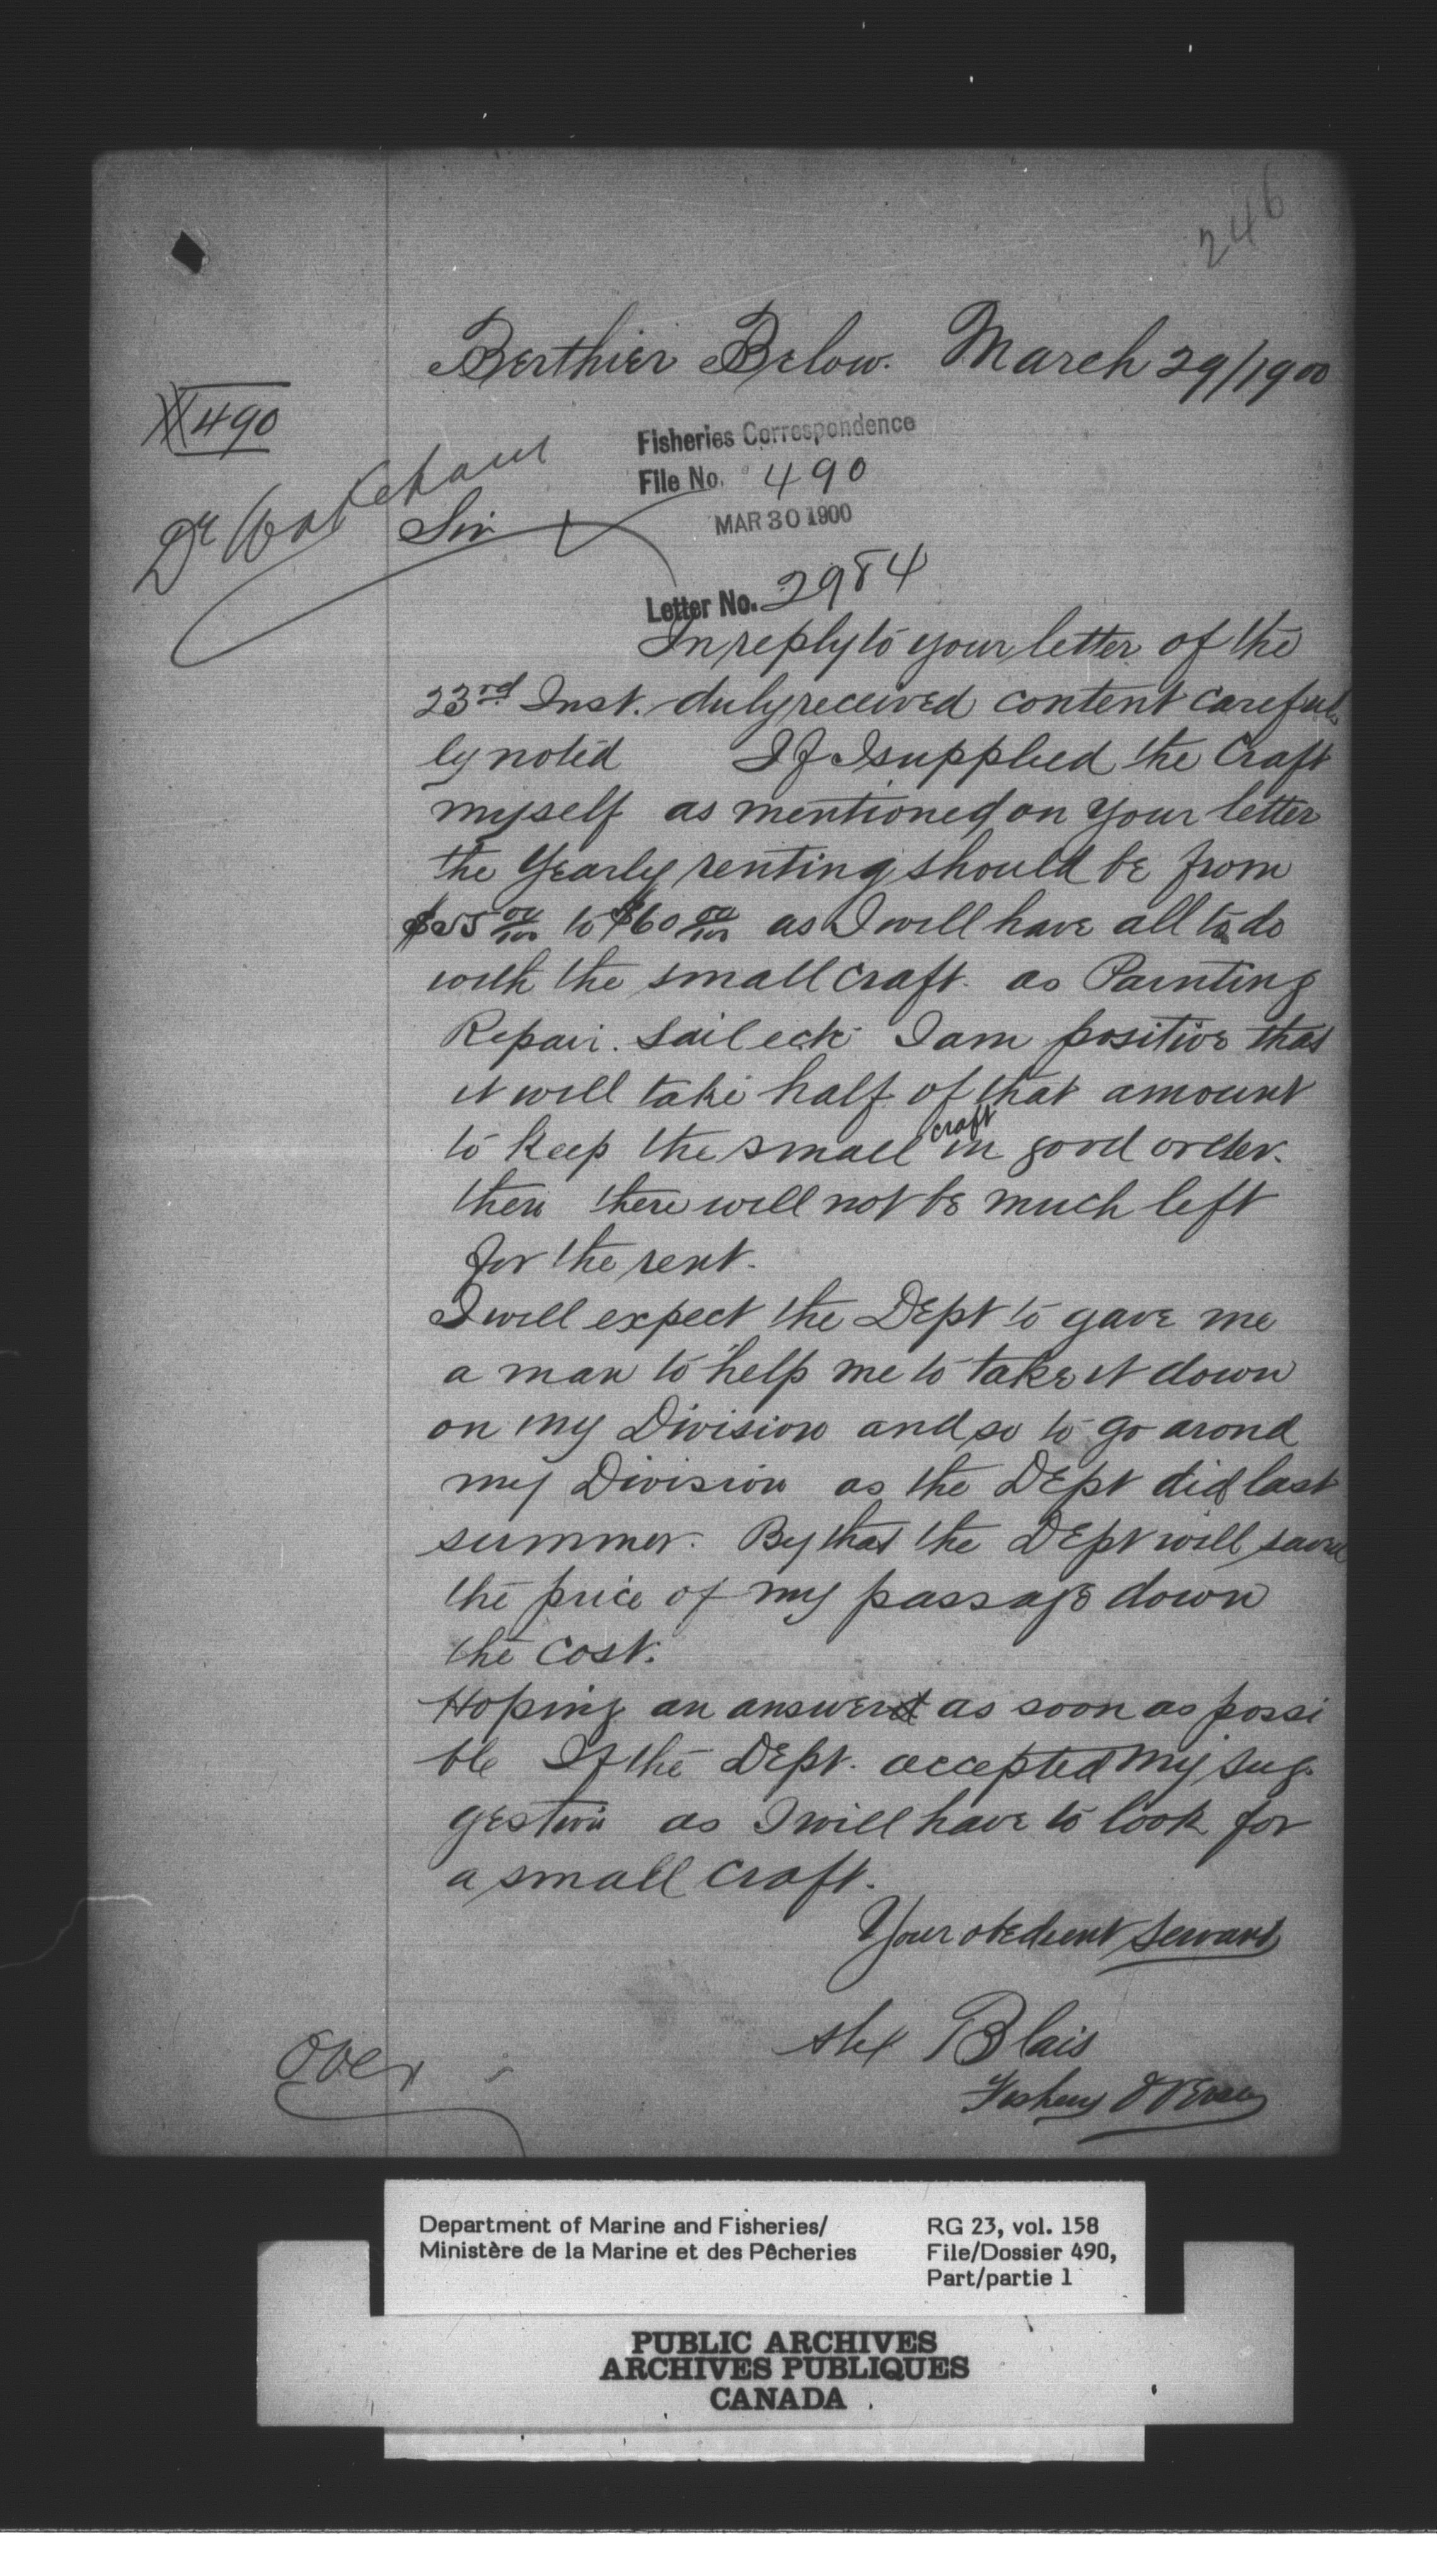 246
Berthier Below. March 29/1900
490
Dr Wakeham
Fisheries Correspondence
File No. 490
MAR 30 1900
Sir
Letter No. 2984
In reply to your letter of the
23rd Inst. duly received content careful
ly noted If I supplied the Craft
myself as mentioned on your letter
the yearly renting should be from
$55 00/100 to $60 00/100 as I will have all to do
with the small craft. as Painting
Repair. Sail ect I am positive that
it will take half of that amount
to keep the small craft in good order.
then there will not be much left
for the rent.
I will expect the Dept to gave me
a man to help me to take it down
on my Division and so to go arond
my Division as the Dept did last
summer. By that the Dept will save
the price of my passage down
the cost.
Hoping an answer as soon as possi
ble If the Dept. accepted my sug-
gestion as I will have to look for
a small craft.
Your obedient Servant
Alex Blais
Fishery Overseer
Over
Department of Marine and Fisheries/
Ministère de la Marine et des Pêcheries
RG 23, vol. 158
File/Dossier 490,
Part/partie 1
PUBLIC ARCHIVES
ARCHIVES PUBLIQUES
CANADA